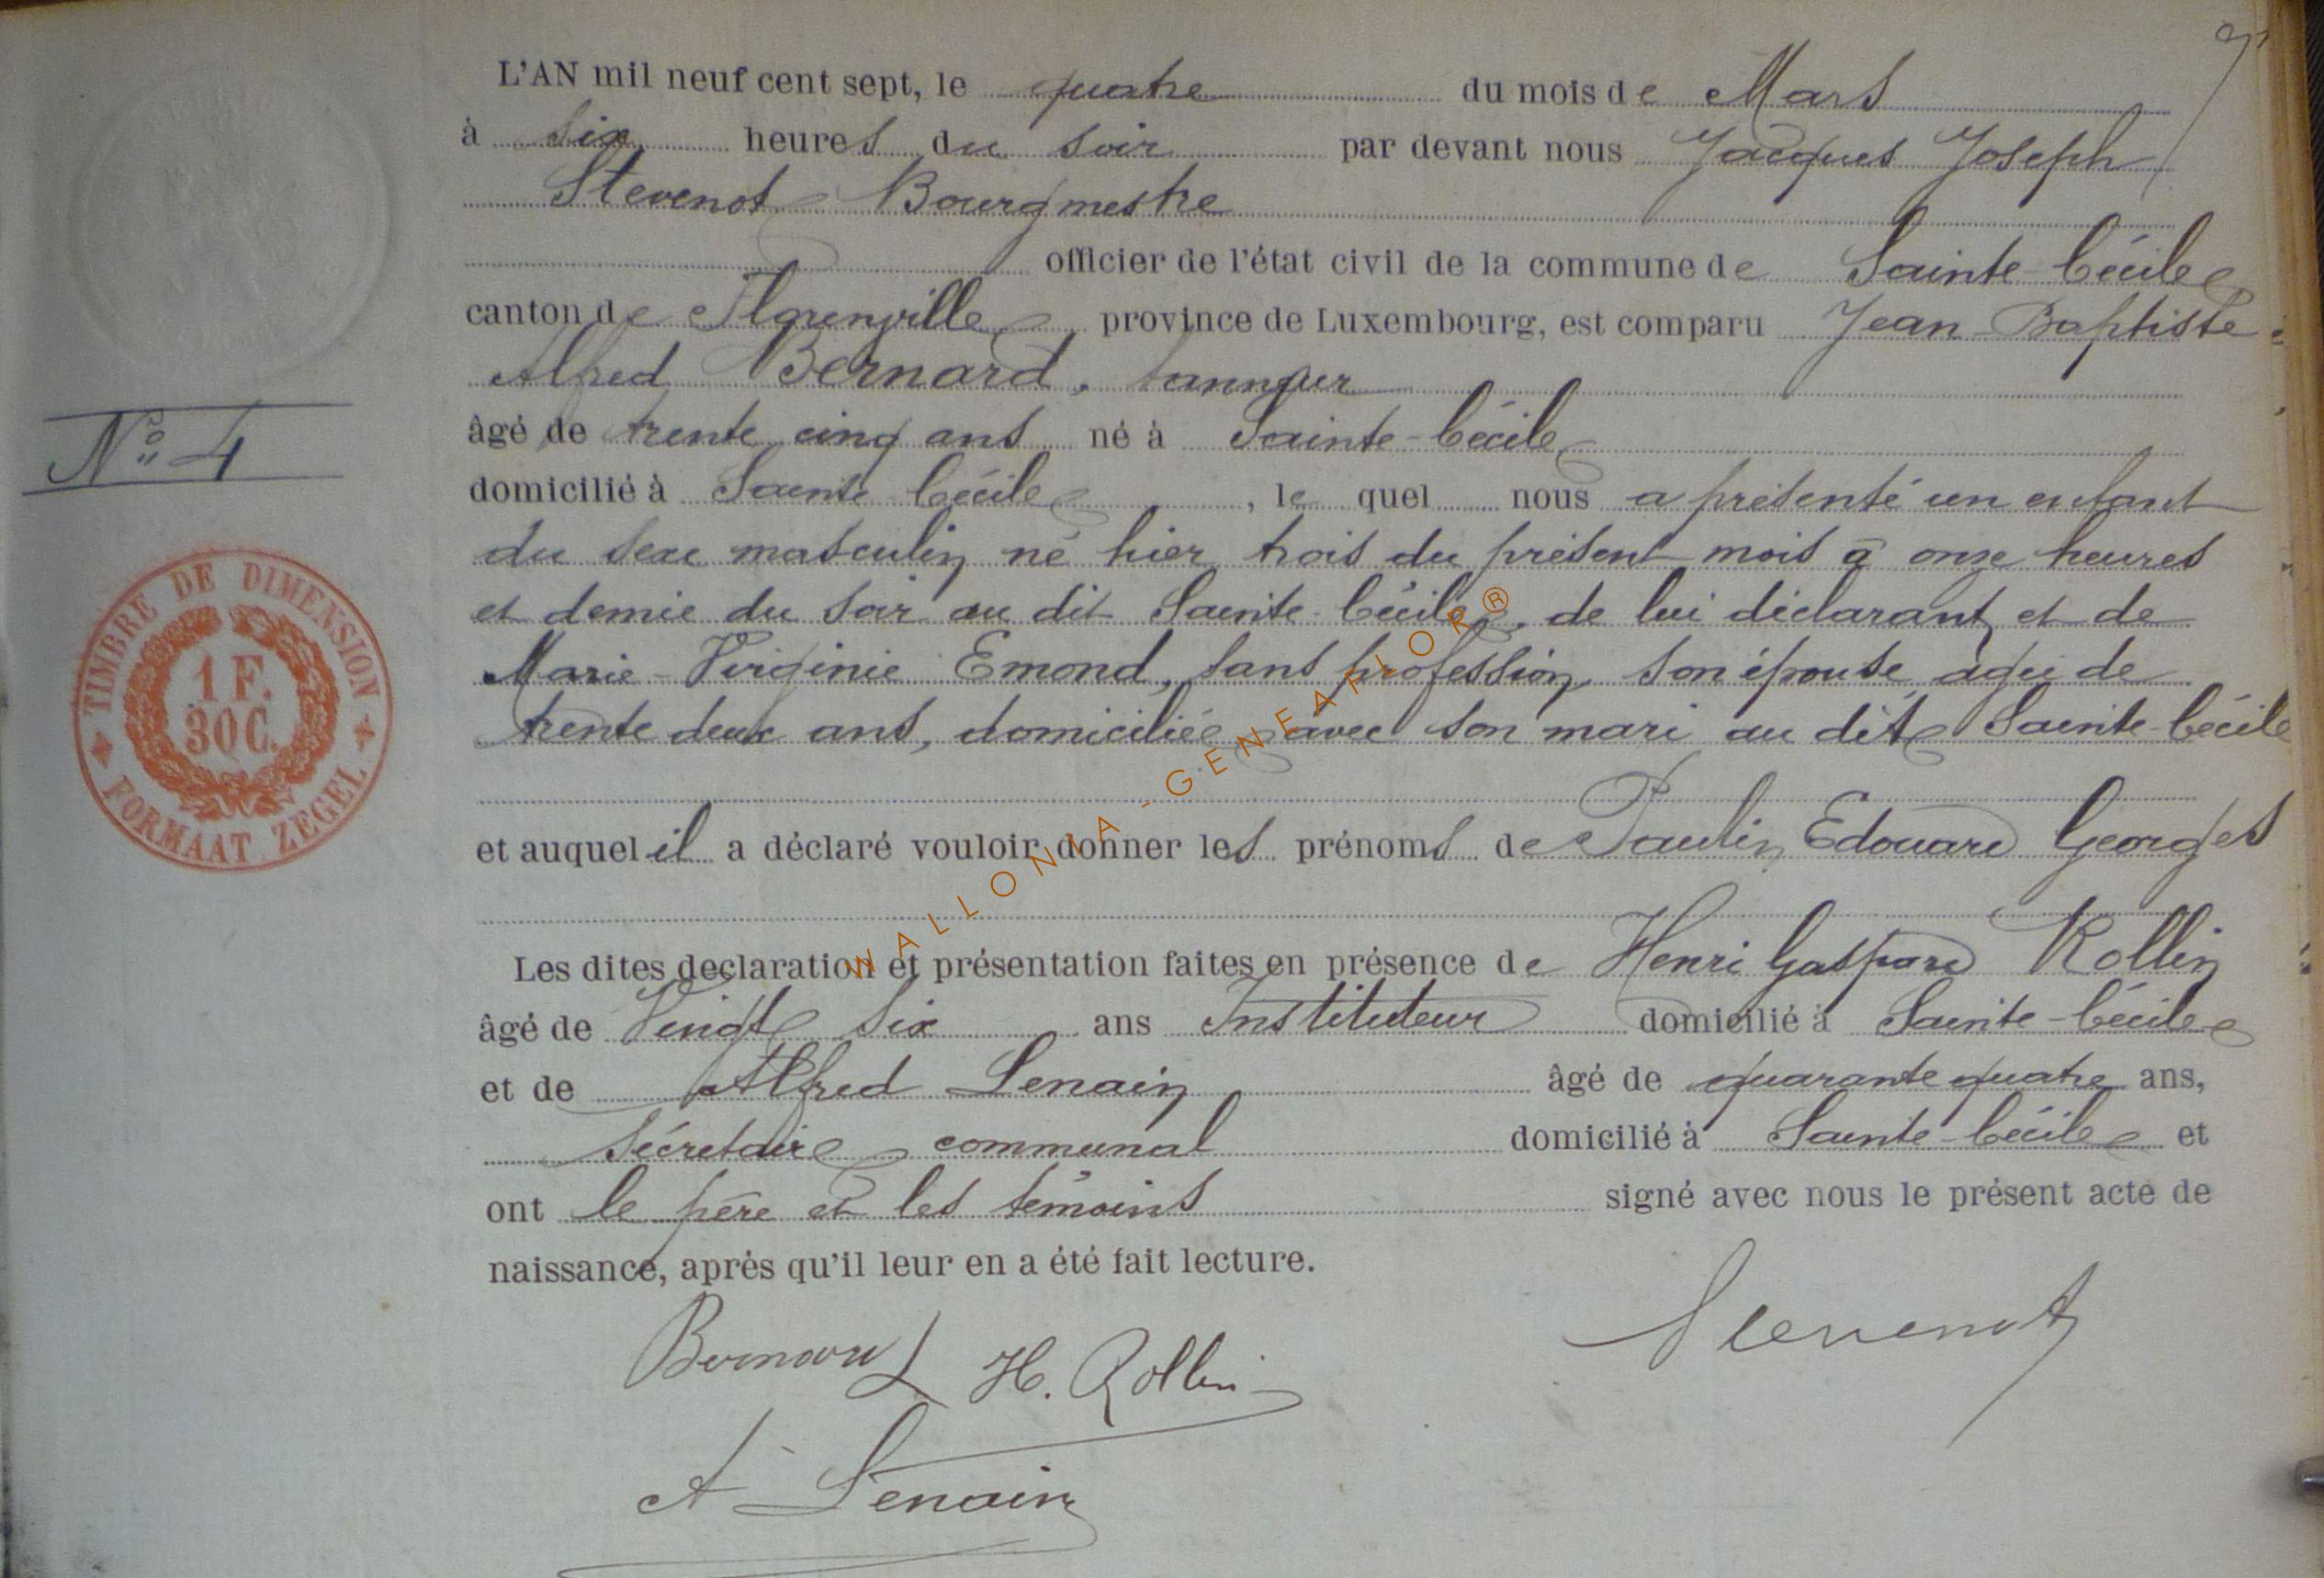 L'AN mil neuf cent sept, le quatre du mois de Mars
à six heures du soir par devant nous Jacques Joseph
Stevenot Bourgmestre
officier de l'état civil de la commune de Sainte-Cécile
canton de Florenville, province de Luxembourg, est comparu Jean-Baptiste
Alfred Bernard, tanneur
âgé de trente cinq ans né à Sainte-Cécile
domicilié à Sainte Cécile, le quel nous a présenté un enfant
du sexe masculin né hier trois du présent mois à onze heures
et demie du soir au dit Sainte-Cécile, de lui déclarant et de
Marie-Virginie Emond, sans profession, son épouse, âgée de
trente deux ans, domiciliée avec son mari au dit Sainte-Cécile
et auquel il a déclaré vouloir donner les prénoms de Paulin Edouard Georges
Les dites declaration et présentation faites en présence de Henri Gaspard Rollin
âgé de Vingt six ans Instituteur domicilié à Sainte-Cécile
et de Alfred Lenain âgé de quarante quatre ans,
Sécretaire communal domicilié à Sainte-Cécile et
ont le père et les témoins signé avec nous le présent acte de
naissance, après qu'il leur en a été fait lecture.
Bernard H. Rollin Stevenot
A Lenain
N° 4
TIMBRE DE DIMENSION
1 F.
30 C.
FORMAAT ZEGEL
WALLONIA-GENEAFIOR®